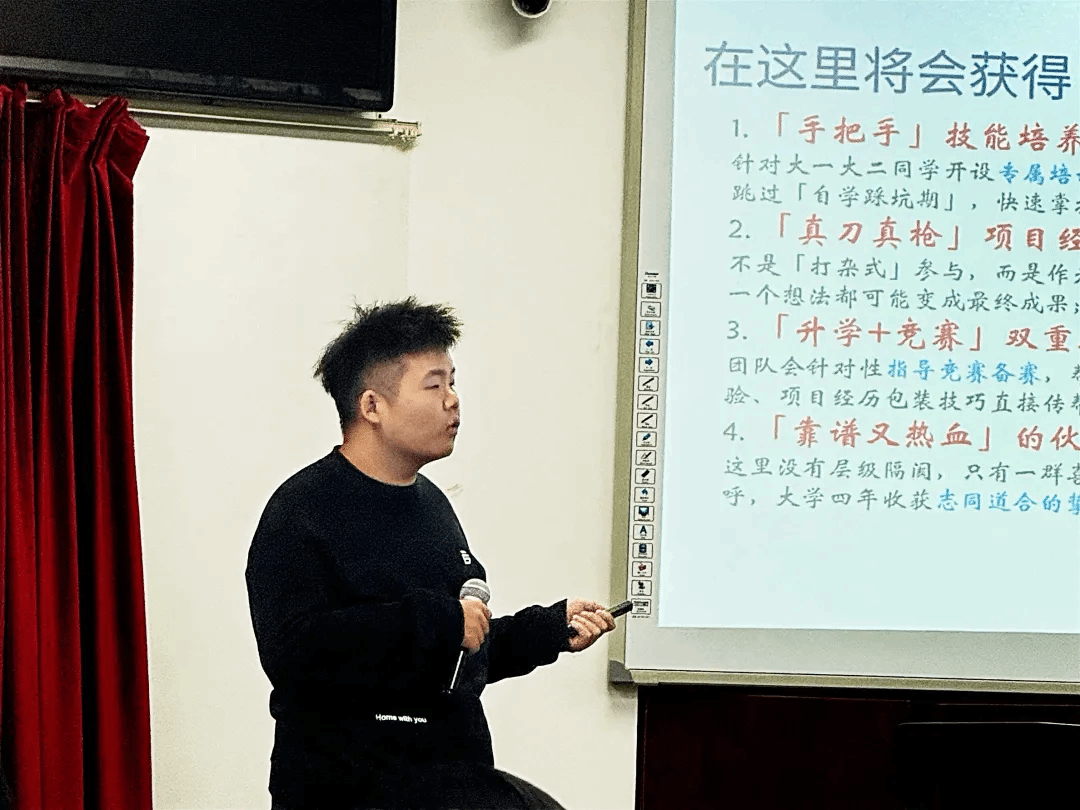 在这里将会获得
1.「手把手」技能培养
针对大一大二同学开设专属培
跳过「自学踩坑期」，快速掌
2.「真刀真枪」项目经
不是「打杂式」参与，而是作
一个想法都可能变成最终成果
3.「升学+竞赛」双重
团队会针对性指导竞赛备赛，
验、项目经历包装技巧直接传
4.「靠谱又热血」的伙
这里没有层级隔阂，只有一群
呼，大学四年收获志同道合的
Home with you